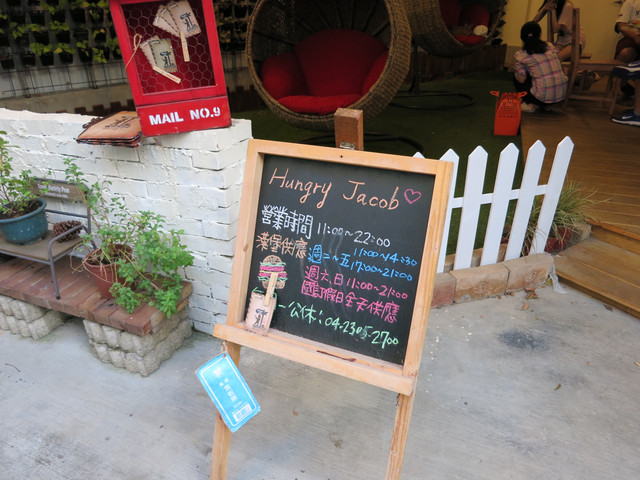 MAIL NO.9
Hungry Jacob
營業時間 11:00~22:00
漢堡供應 週二~五 11:00~14:30
17:00~21:00
週六.日 11:00~21:00
國訂假日全天供應
一公休: 04-2305-2700